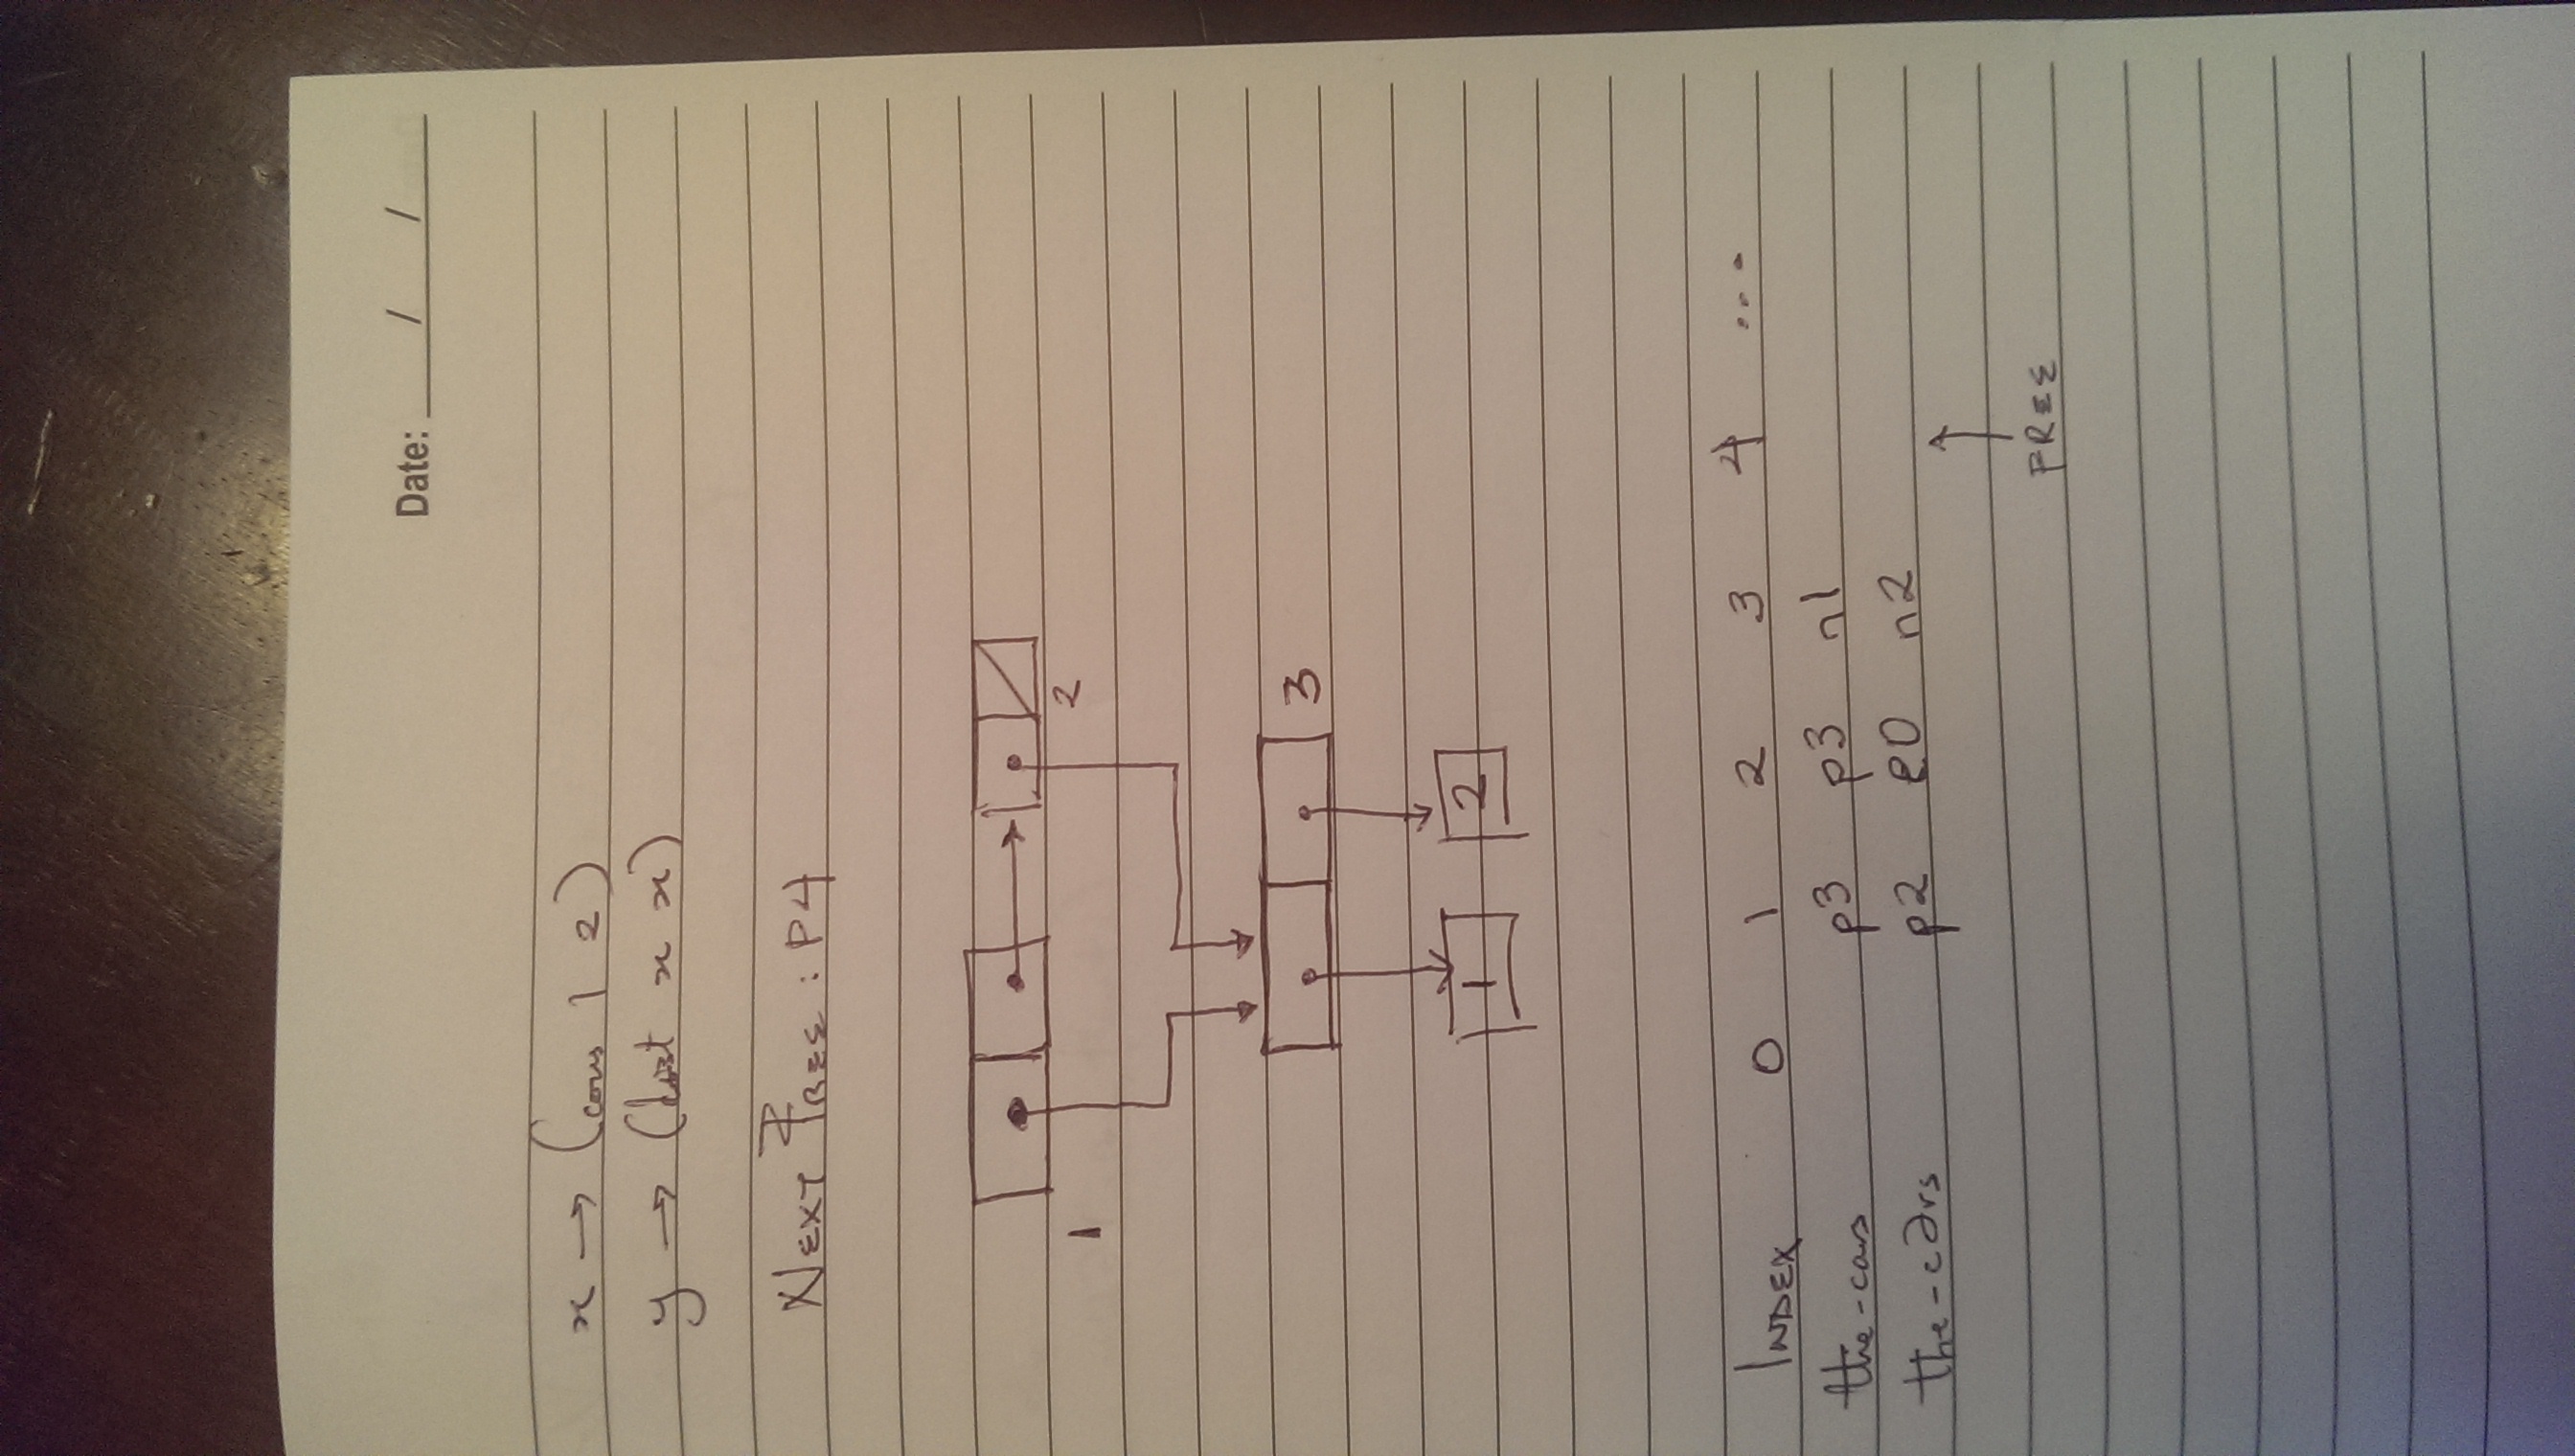 Date: / /
x → (cons 1 2)
y → (list x x)
NEXT FREE : P4
1 2
3
1 2
INDEX 0 1 2 3 4 ...
the-cars p3 p3 n1
the-cdrs p2 e0 n2
FREE